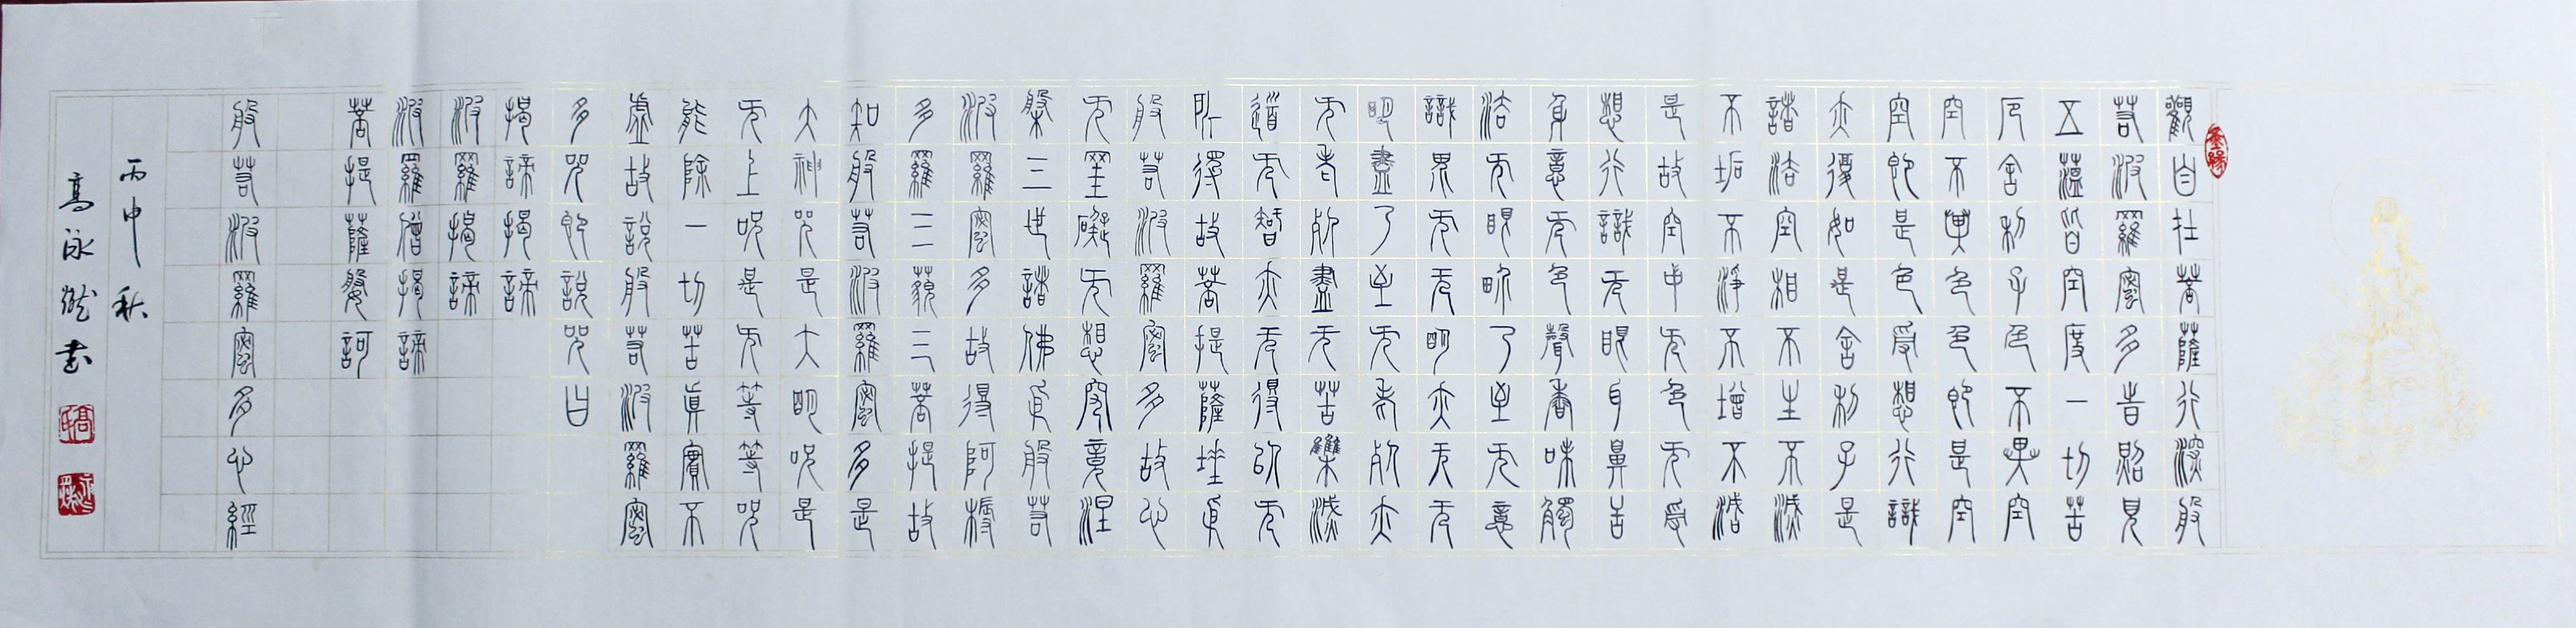 墨緣
觀自在菩薩行深般
若波羅蜜多時照見
五蘊皆空度一切苦
厄舍利子色不異空
空不異色色即是空
空即是色受想行識
亦復如是舍利子是
諸法空相不生不滅
不垢不淨不增不減
是故空中无色无受
想行識无眼耳鼻舌
身意无色聲香味觸
法无眼界乃至无意
識界无无明亦无无
明盡乃至无老死亦
无老死盡无苦集滅
道无智亦无得以无
所得故菩提薩埵依
般若波羅蜜多故心
无罣礙无想究竟涅
槃三世諸佛依般若
波羅蜜多故得阿耨
多羅三藐三菩提故
知般若波羅蜜多是
大神咒是大明咒是
无上咒是无等等咒
能除一切苦真實不
虛故說般若波羅蜜
多咒即說咒曰
揭諦揭諦
波羅揭諦
波羅僧揭諦
菩提薩婆訶
般若波羅蜜多心經
丙申秋
高泳書